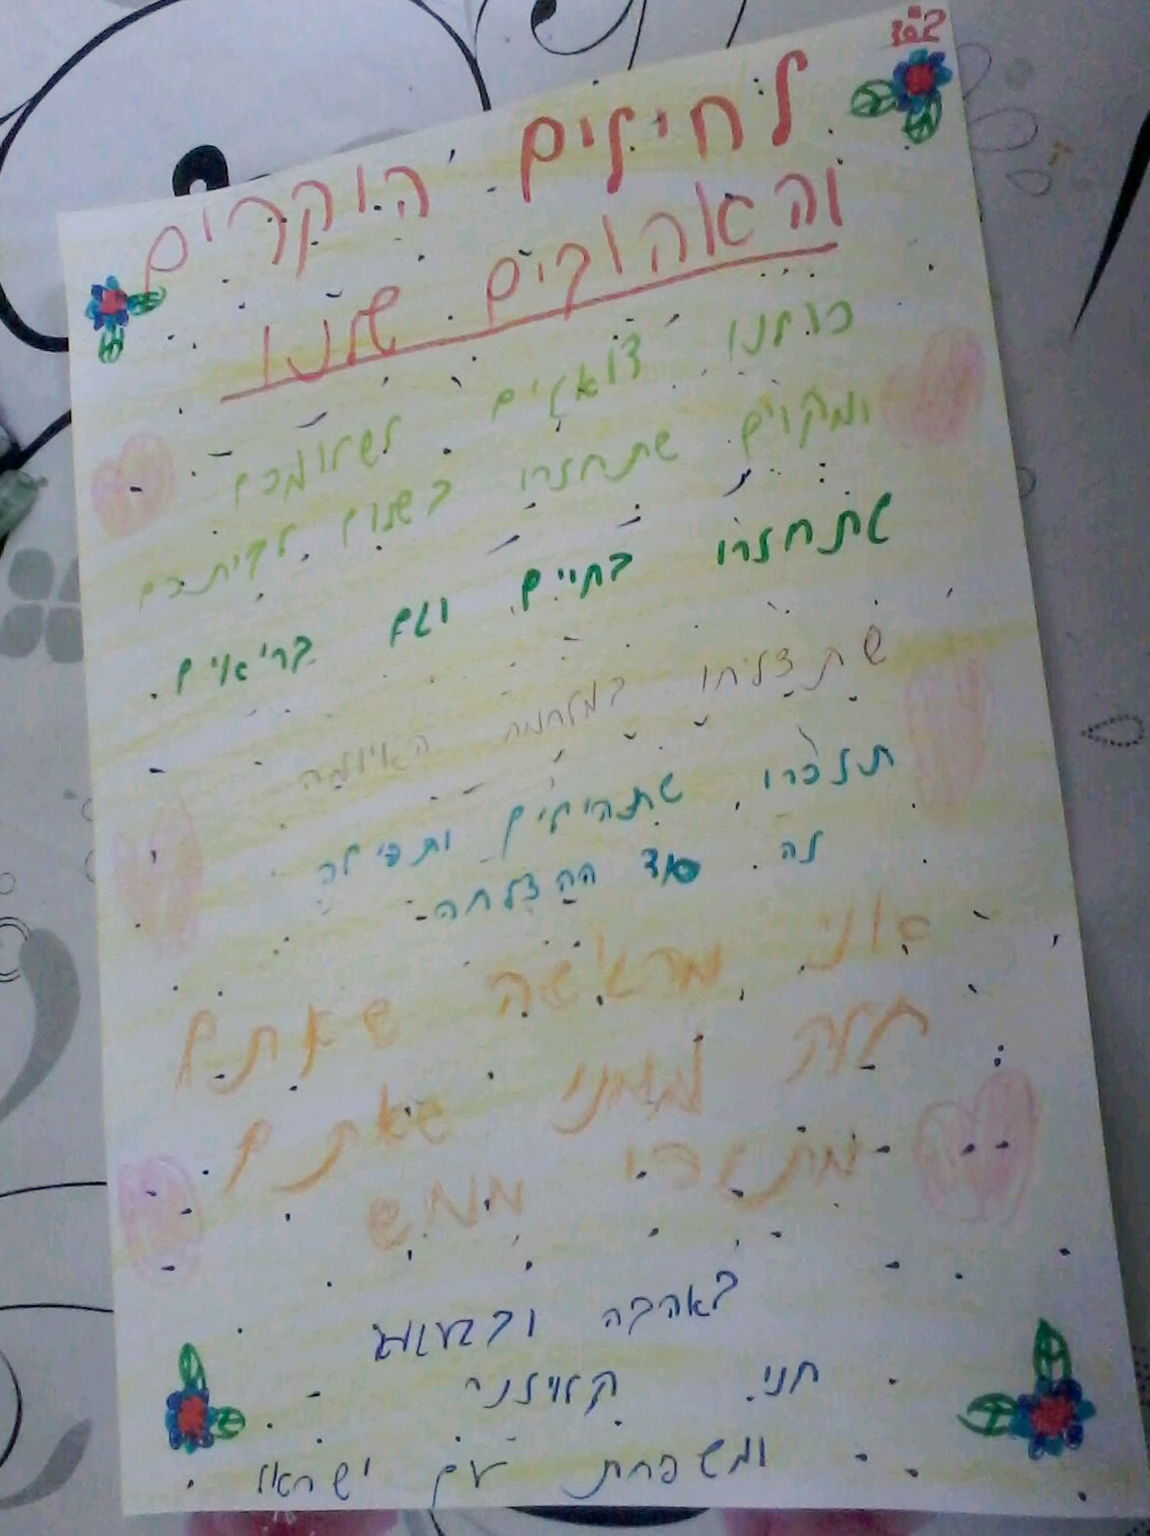 בס"ד
לחיילים היקרים
והאהובים שלנו
כולנו דואגים לשלומכם
ומקוים שתחזרו בשלום לביתכם
שתחזרו בחיים וגם בריאים.
שתצליחו במלחמה האיומה
תזכרו שתהילים ותפילה
זה סוד ההצלחה
אני מרגישה שאתם
חלק ממני שאתם
ממש
באהבה ובגעגוע
חני קלויזנר
ומשפחת עם ישראל